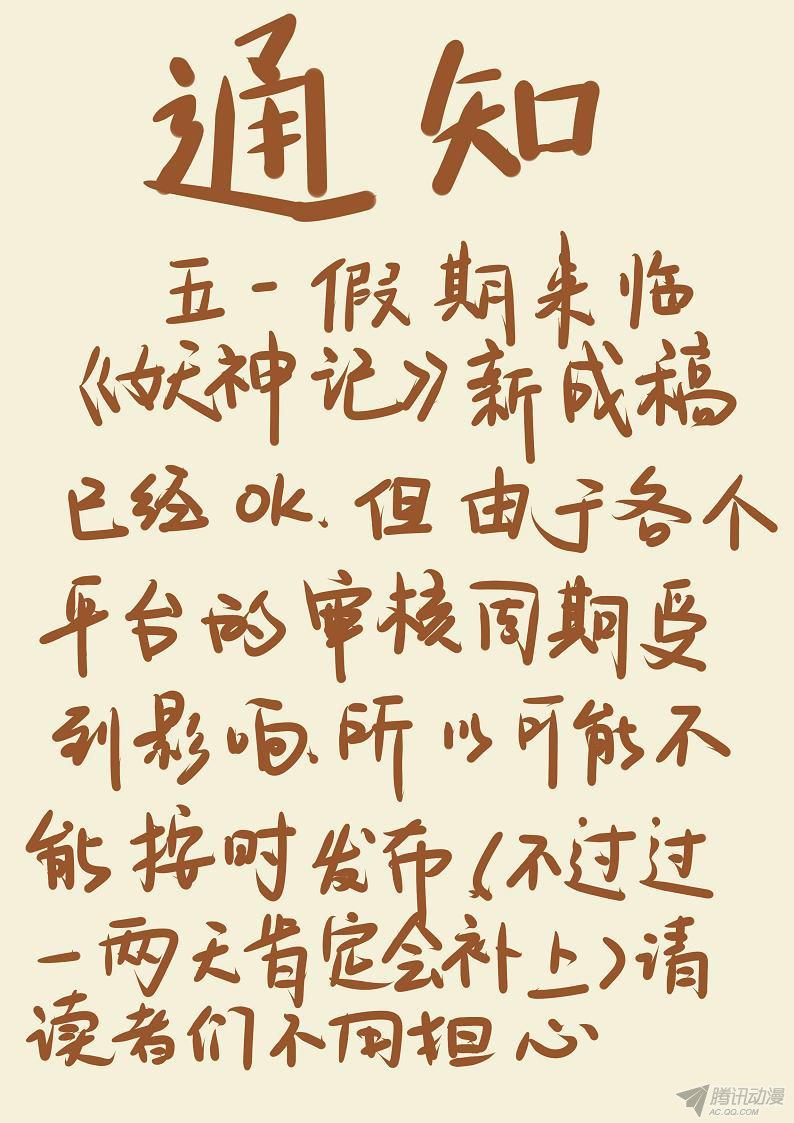 通知
五一假期来临
《妖神记》新成稿
已经OK、但由于各个
平台的审核周期受
到影响、所以可能不
能按时发布(不过过
一两天肯定会补上)请
读者们不用担心
腾讯动漫
AC.QQ.COM